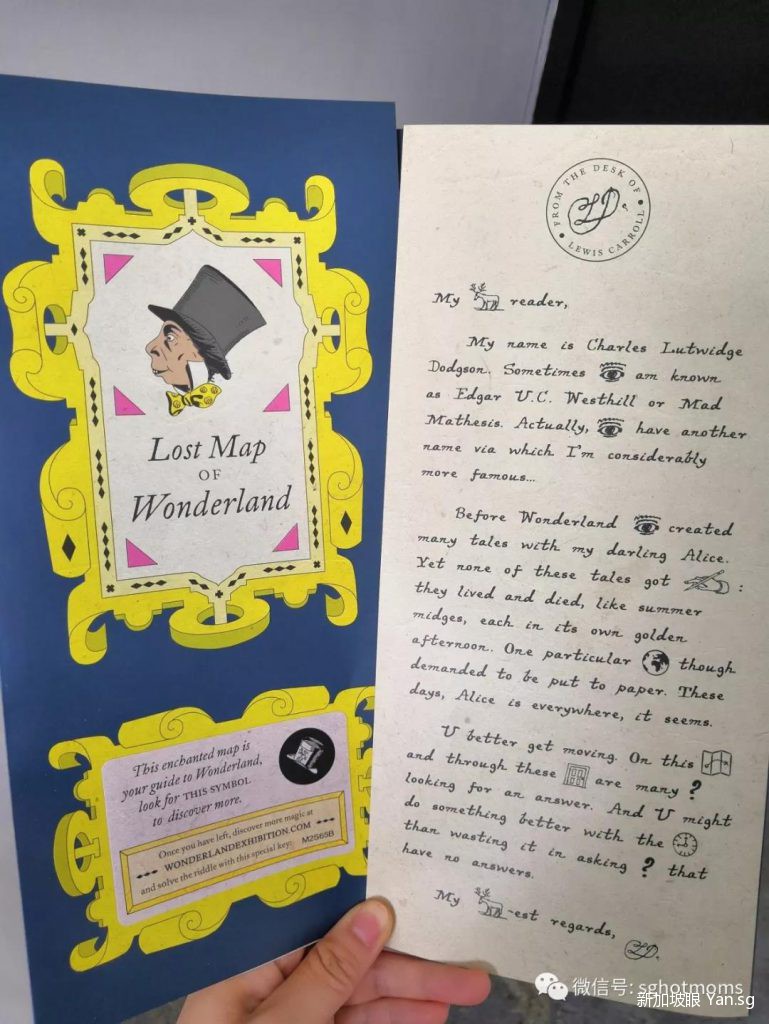 Lost Map
OF
Wonderland
This enchanted map is
your guide to Wonderland,
look for THIS SYMBOL
to discover more.
Once you have left, discover more magic at
WONDERLANDEXHIBITION.COM
and solve the riddle with this special key: M2565B
FROM THE DESK OF
LEWIS CARROLL
My reader,
My name is Charles Lutwidge
Dodgson. Sometimes am known
as Edgar U.C. Westhill or Mad
Mathesis. Actually, have another
name via which I'm considerably
more famous...
Before Wonderland created
many tales with my darling Alice.
Yet none of these tales got :
they lived and died, like summer
midges, each in its own golden
afternoon. One particular though
demanded to be put to paper. These
days, Alice is everywhere, it seems.
U better get moving. On this
and through these are many ?
looking for an answer. And U might
do something better with the
than wasting it in asking ? that
have no answers.
My -est regards,
微信号: sghotmoms
新加坡眼 Yan.sg